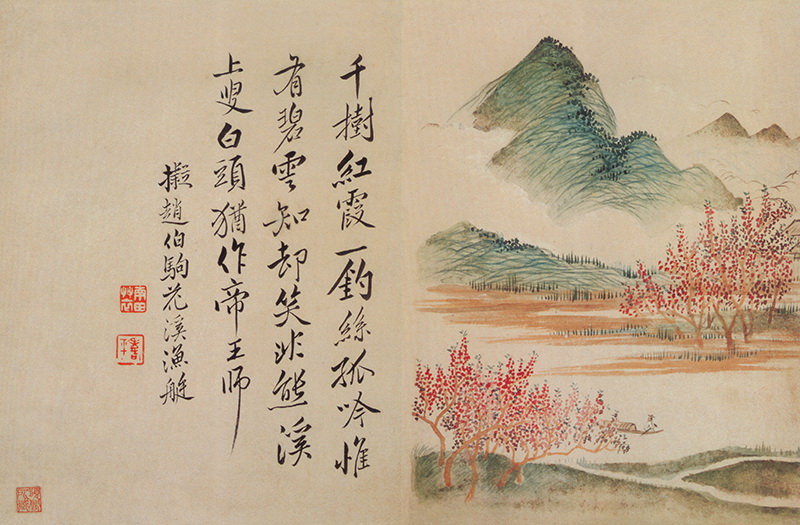 千樹紅霞一釣絲孤吟惟
有碧雲知却笑非熊溪
上叟白頭猶作帝王師
擬趙伯駒花溪漁艇
壽平